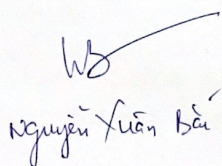 Nguyễn Xuân Bài